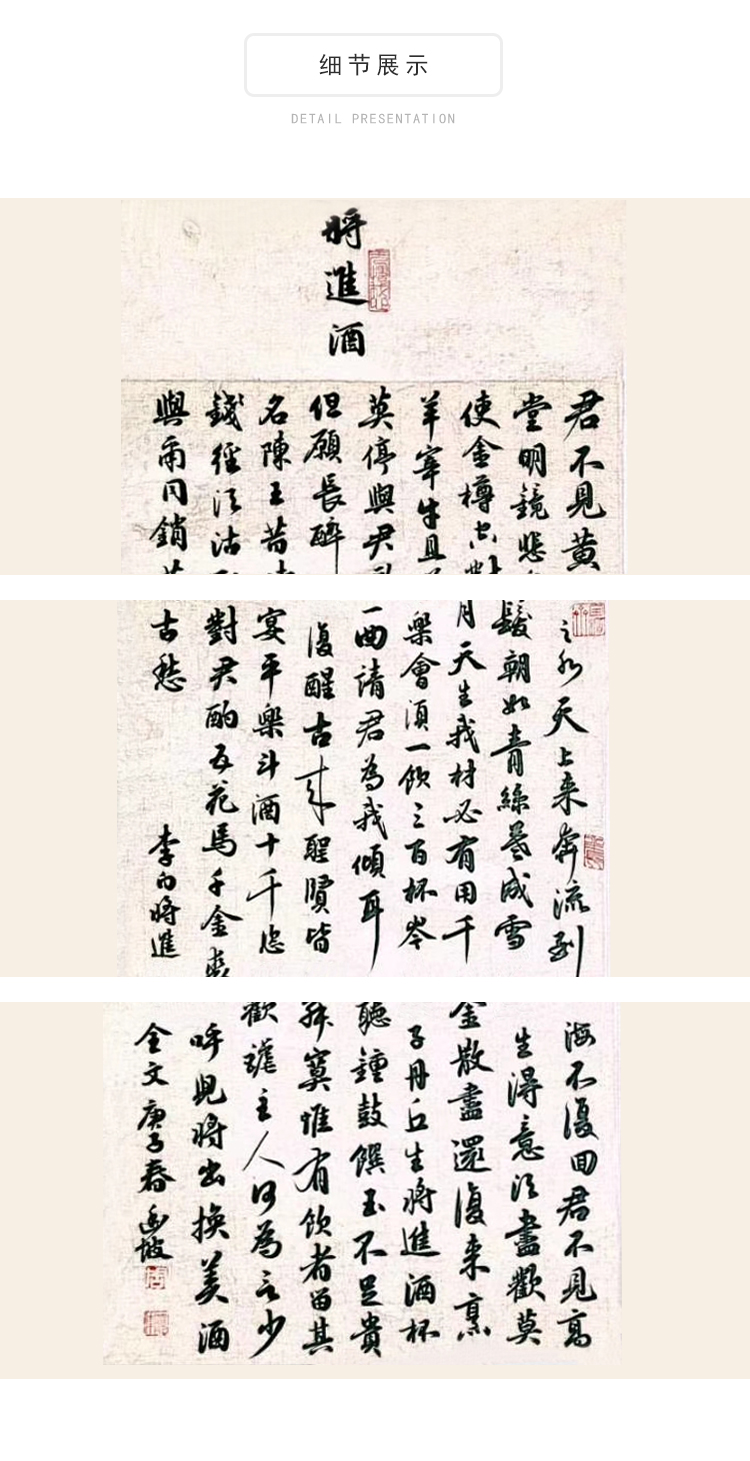 细节展示
DETAIL PRESENTATION
將進酒
君不見黃
堂明鏡悲
使金樽空
羊宰牛且
莫停與君
但願長醉
名陳王昔
錢徑須沽
與爾同銷
之水天上来奔流到
髮朝如青絲暮成雪
月天生我材必有用千
樂會須一飲三百杯岑
一曲請君為我傾耳
復醒古来聖賢皆
宴平樂斗酒十千恣
對君酌五花馬千金裘
古愁
李白將進
海不復回君不見高
生得意須盡歡莫
金散盡還復来烹
子丹丘生將進酒杯
聽鍾鼓饌玉不足貴
寂寞惟有飲者留其
歡謔主人何為言少
呼兒將出換美酒
全文庚子春